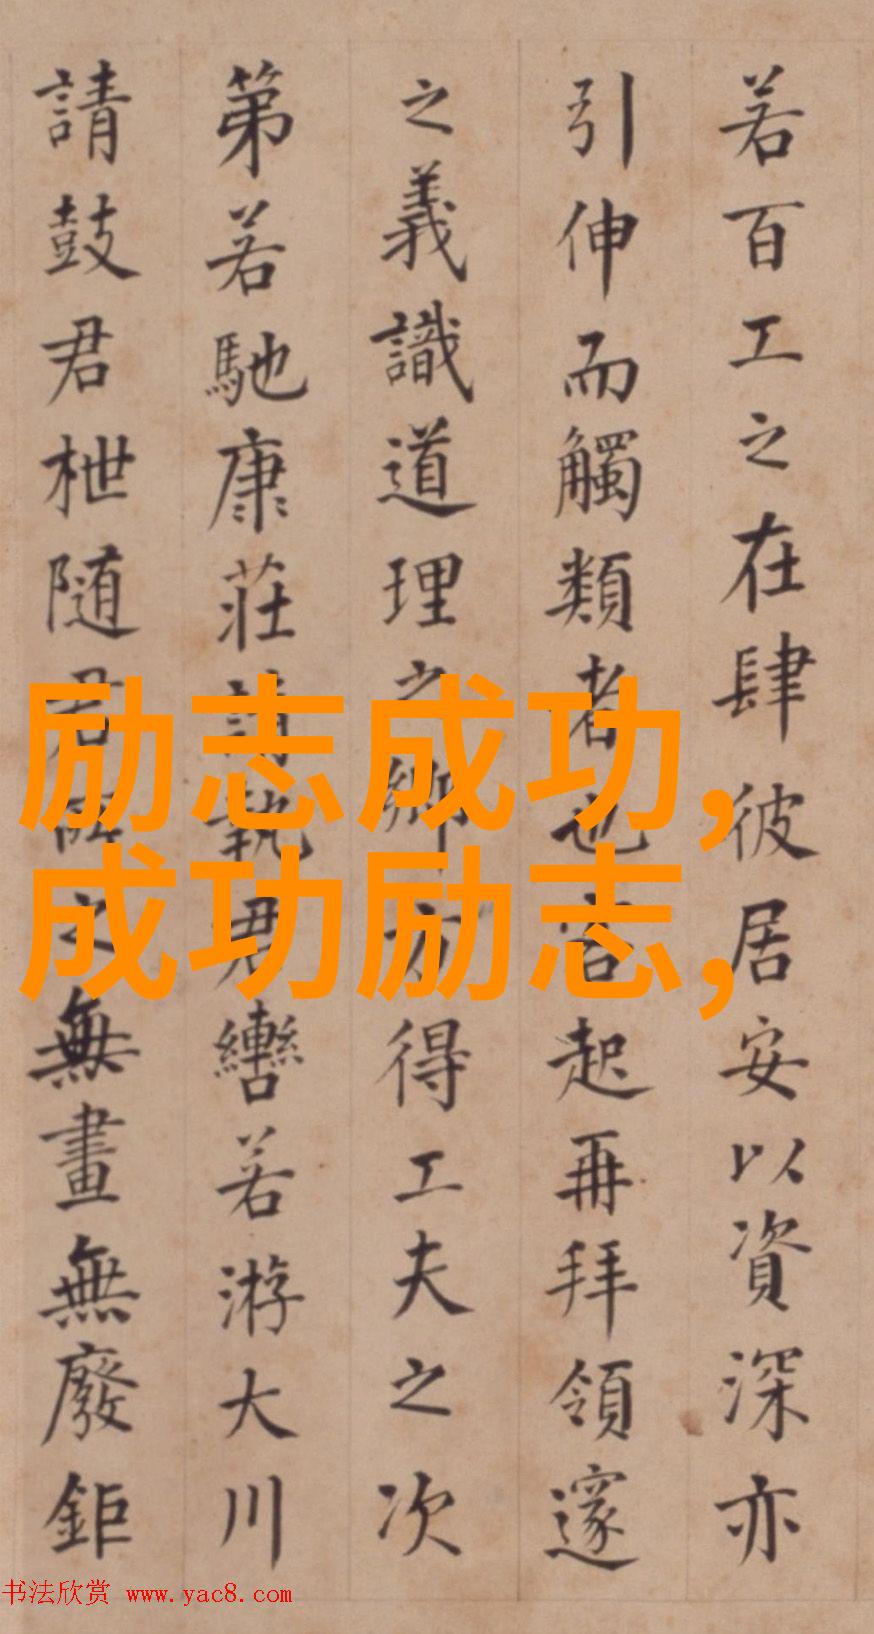 若百工之在肆彼居安以資深亦
引伸而觸類者也客起再拜領邃
之義識道理之鄉方得工夫之次
第若馳康莊請執君轡若游大川
請鼓君枻随君所之無畫無廢鉅
励志成功,
成功励志,
书法欣赏 www.yac8.com